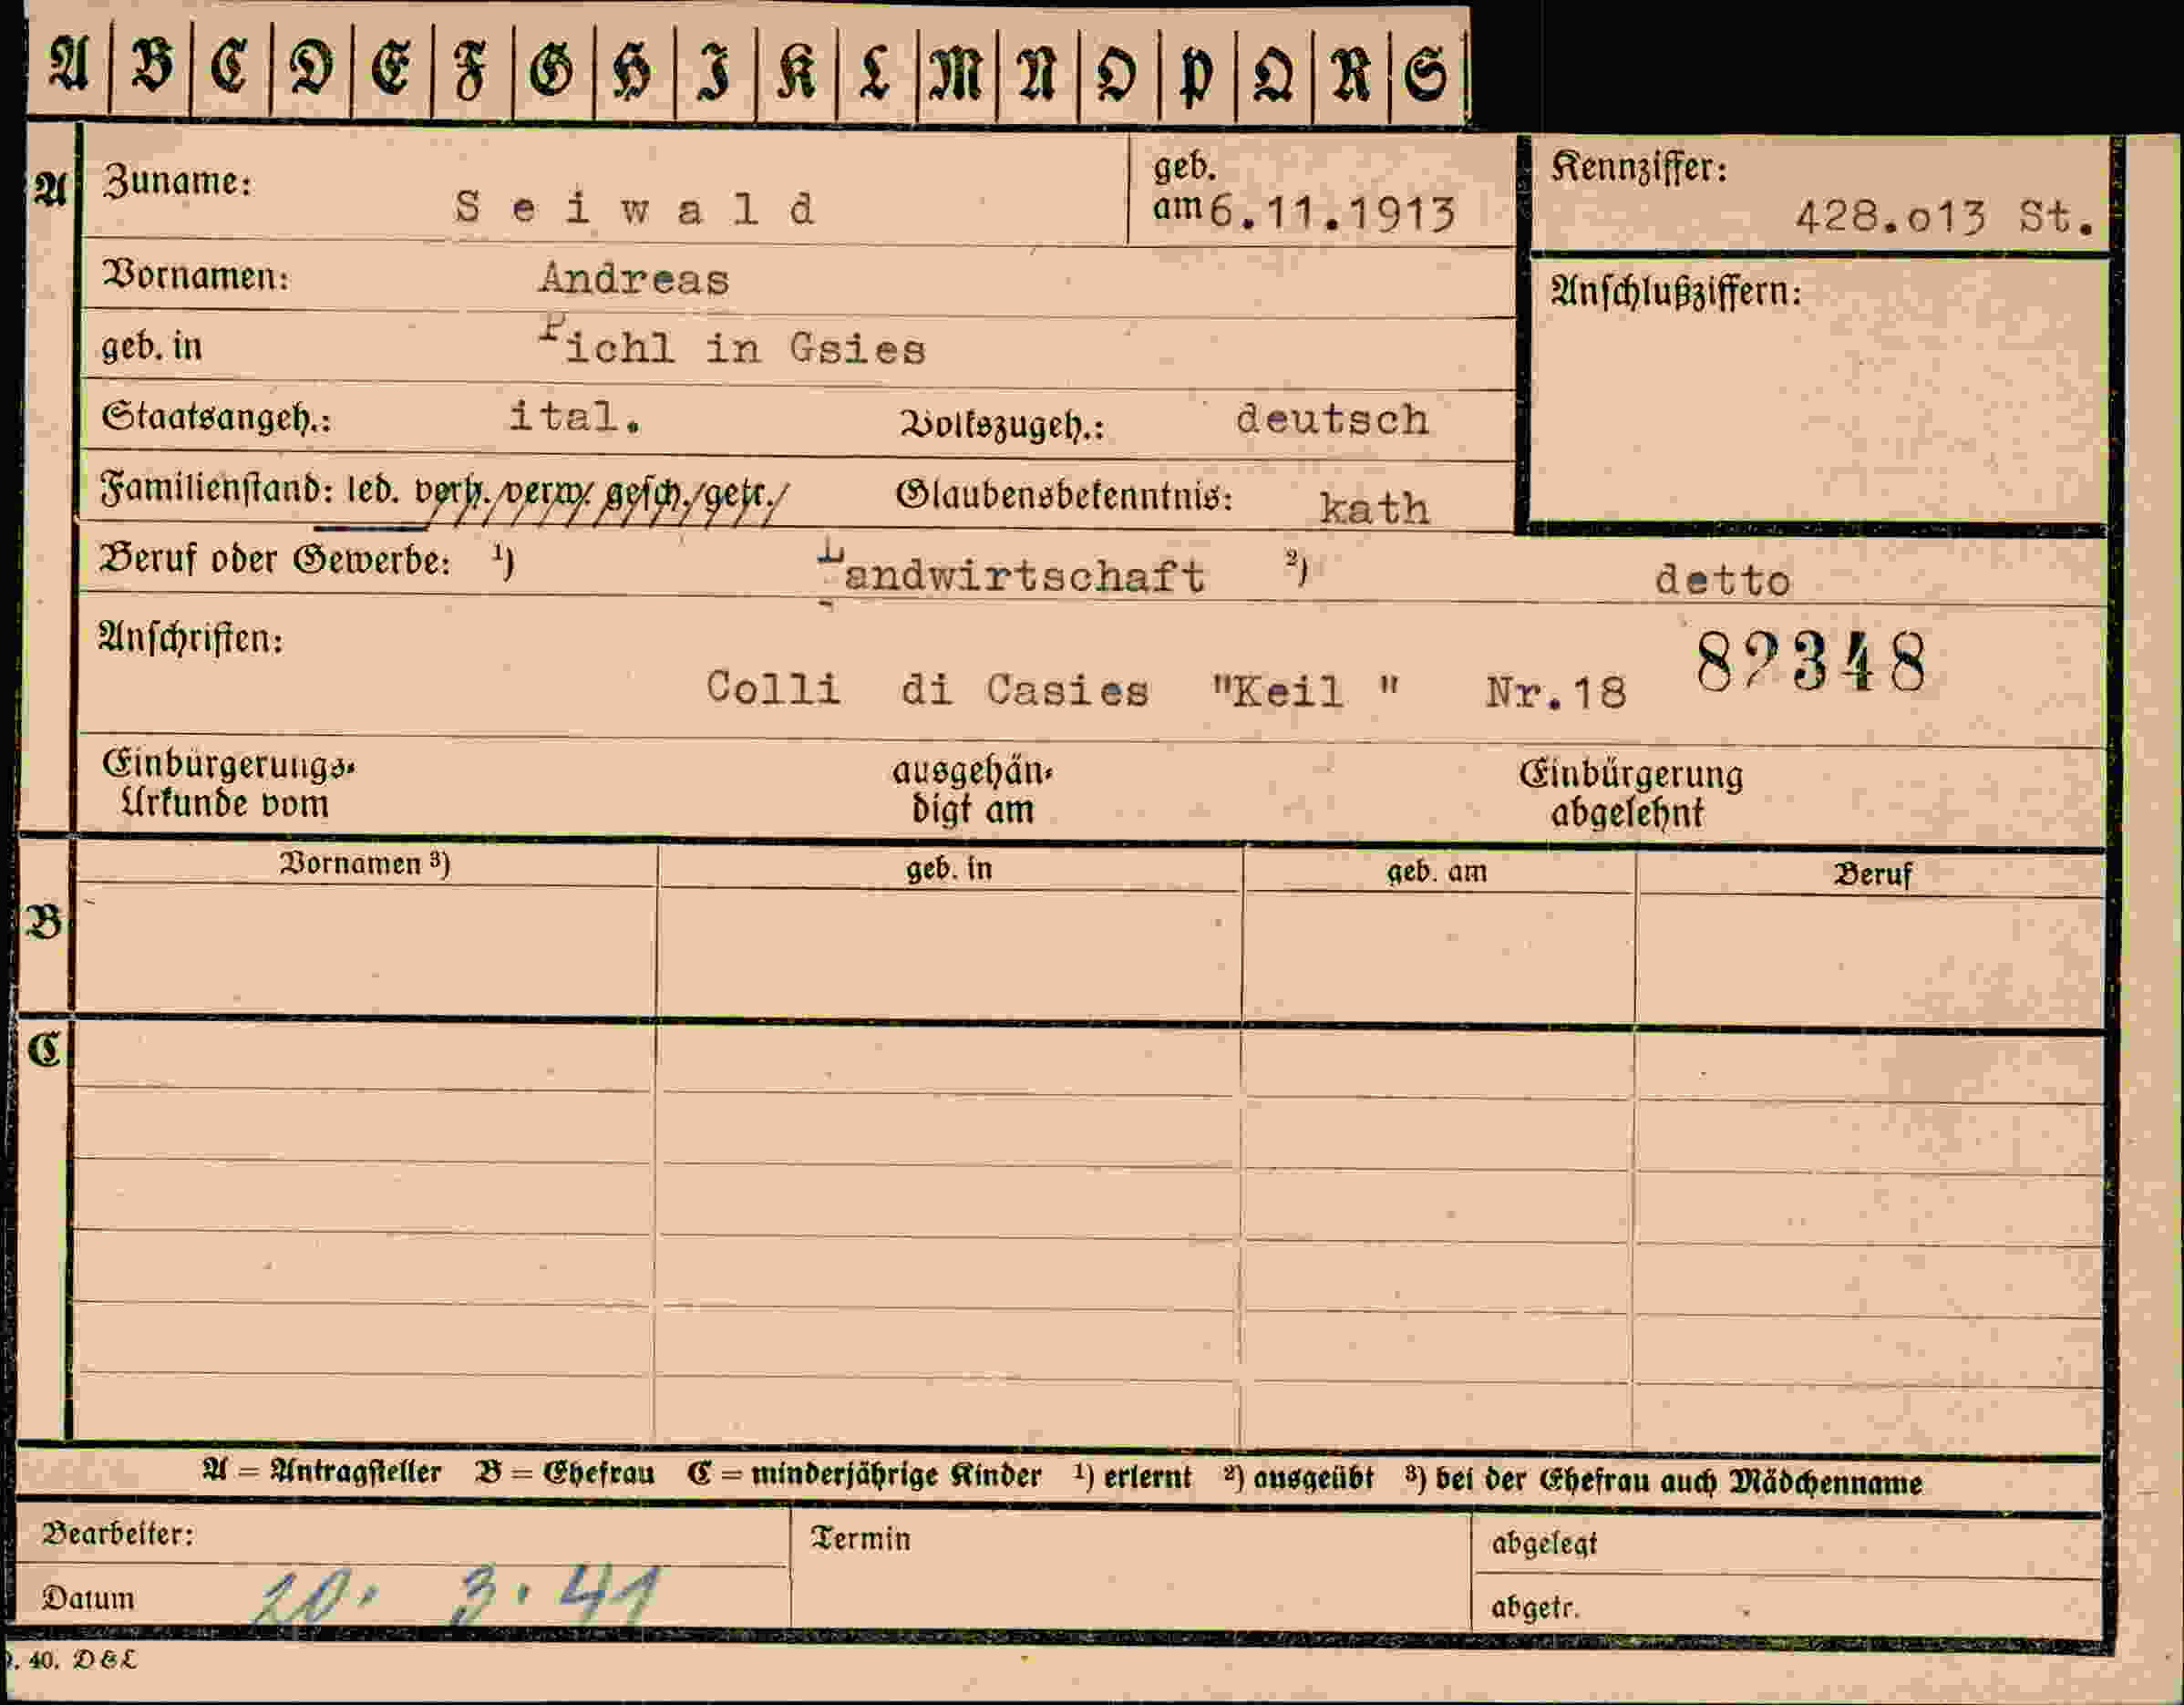 A B C D E F G H I K L M N O P Q R S
A Zuname: Seiwald geb. am 6.11.1913 Kennziffer: 428.o13 St.
Vornamen: Andreas Anschlußziffern:
geb. in Pichl in Gsies
Staatsangeh.: ital. Volkszugeh.: deutsch
Familienstand: led. verh. verw. gesch. getr. Glaubensbekenntnis: kath
Beruf oder Gewerbe: 1) Landwirtschaft 2) detto
Anschriften: 82348
Colli di Casies "Keil " Nr.18
Einbürgerungs- ausgehän- Einbürgerung
Urkunde vom digt am abgelehnt
Vornamen 3) geb. in geb. am Beruf
B
C
A = Antragsteller B = Ehefrau C = minderjährige Kinder 1) erlernt 2) ausgeübt 3) bei der Ehefrau auch Mädchenname
Bearbeiter: Termin abgelegt
Datum 20. 3. 41 abgetr.
. 40. D&L